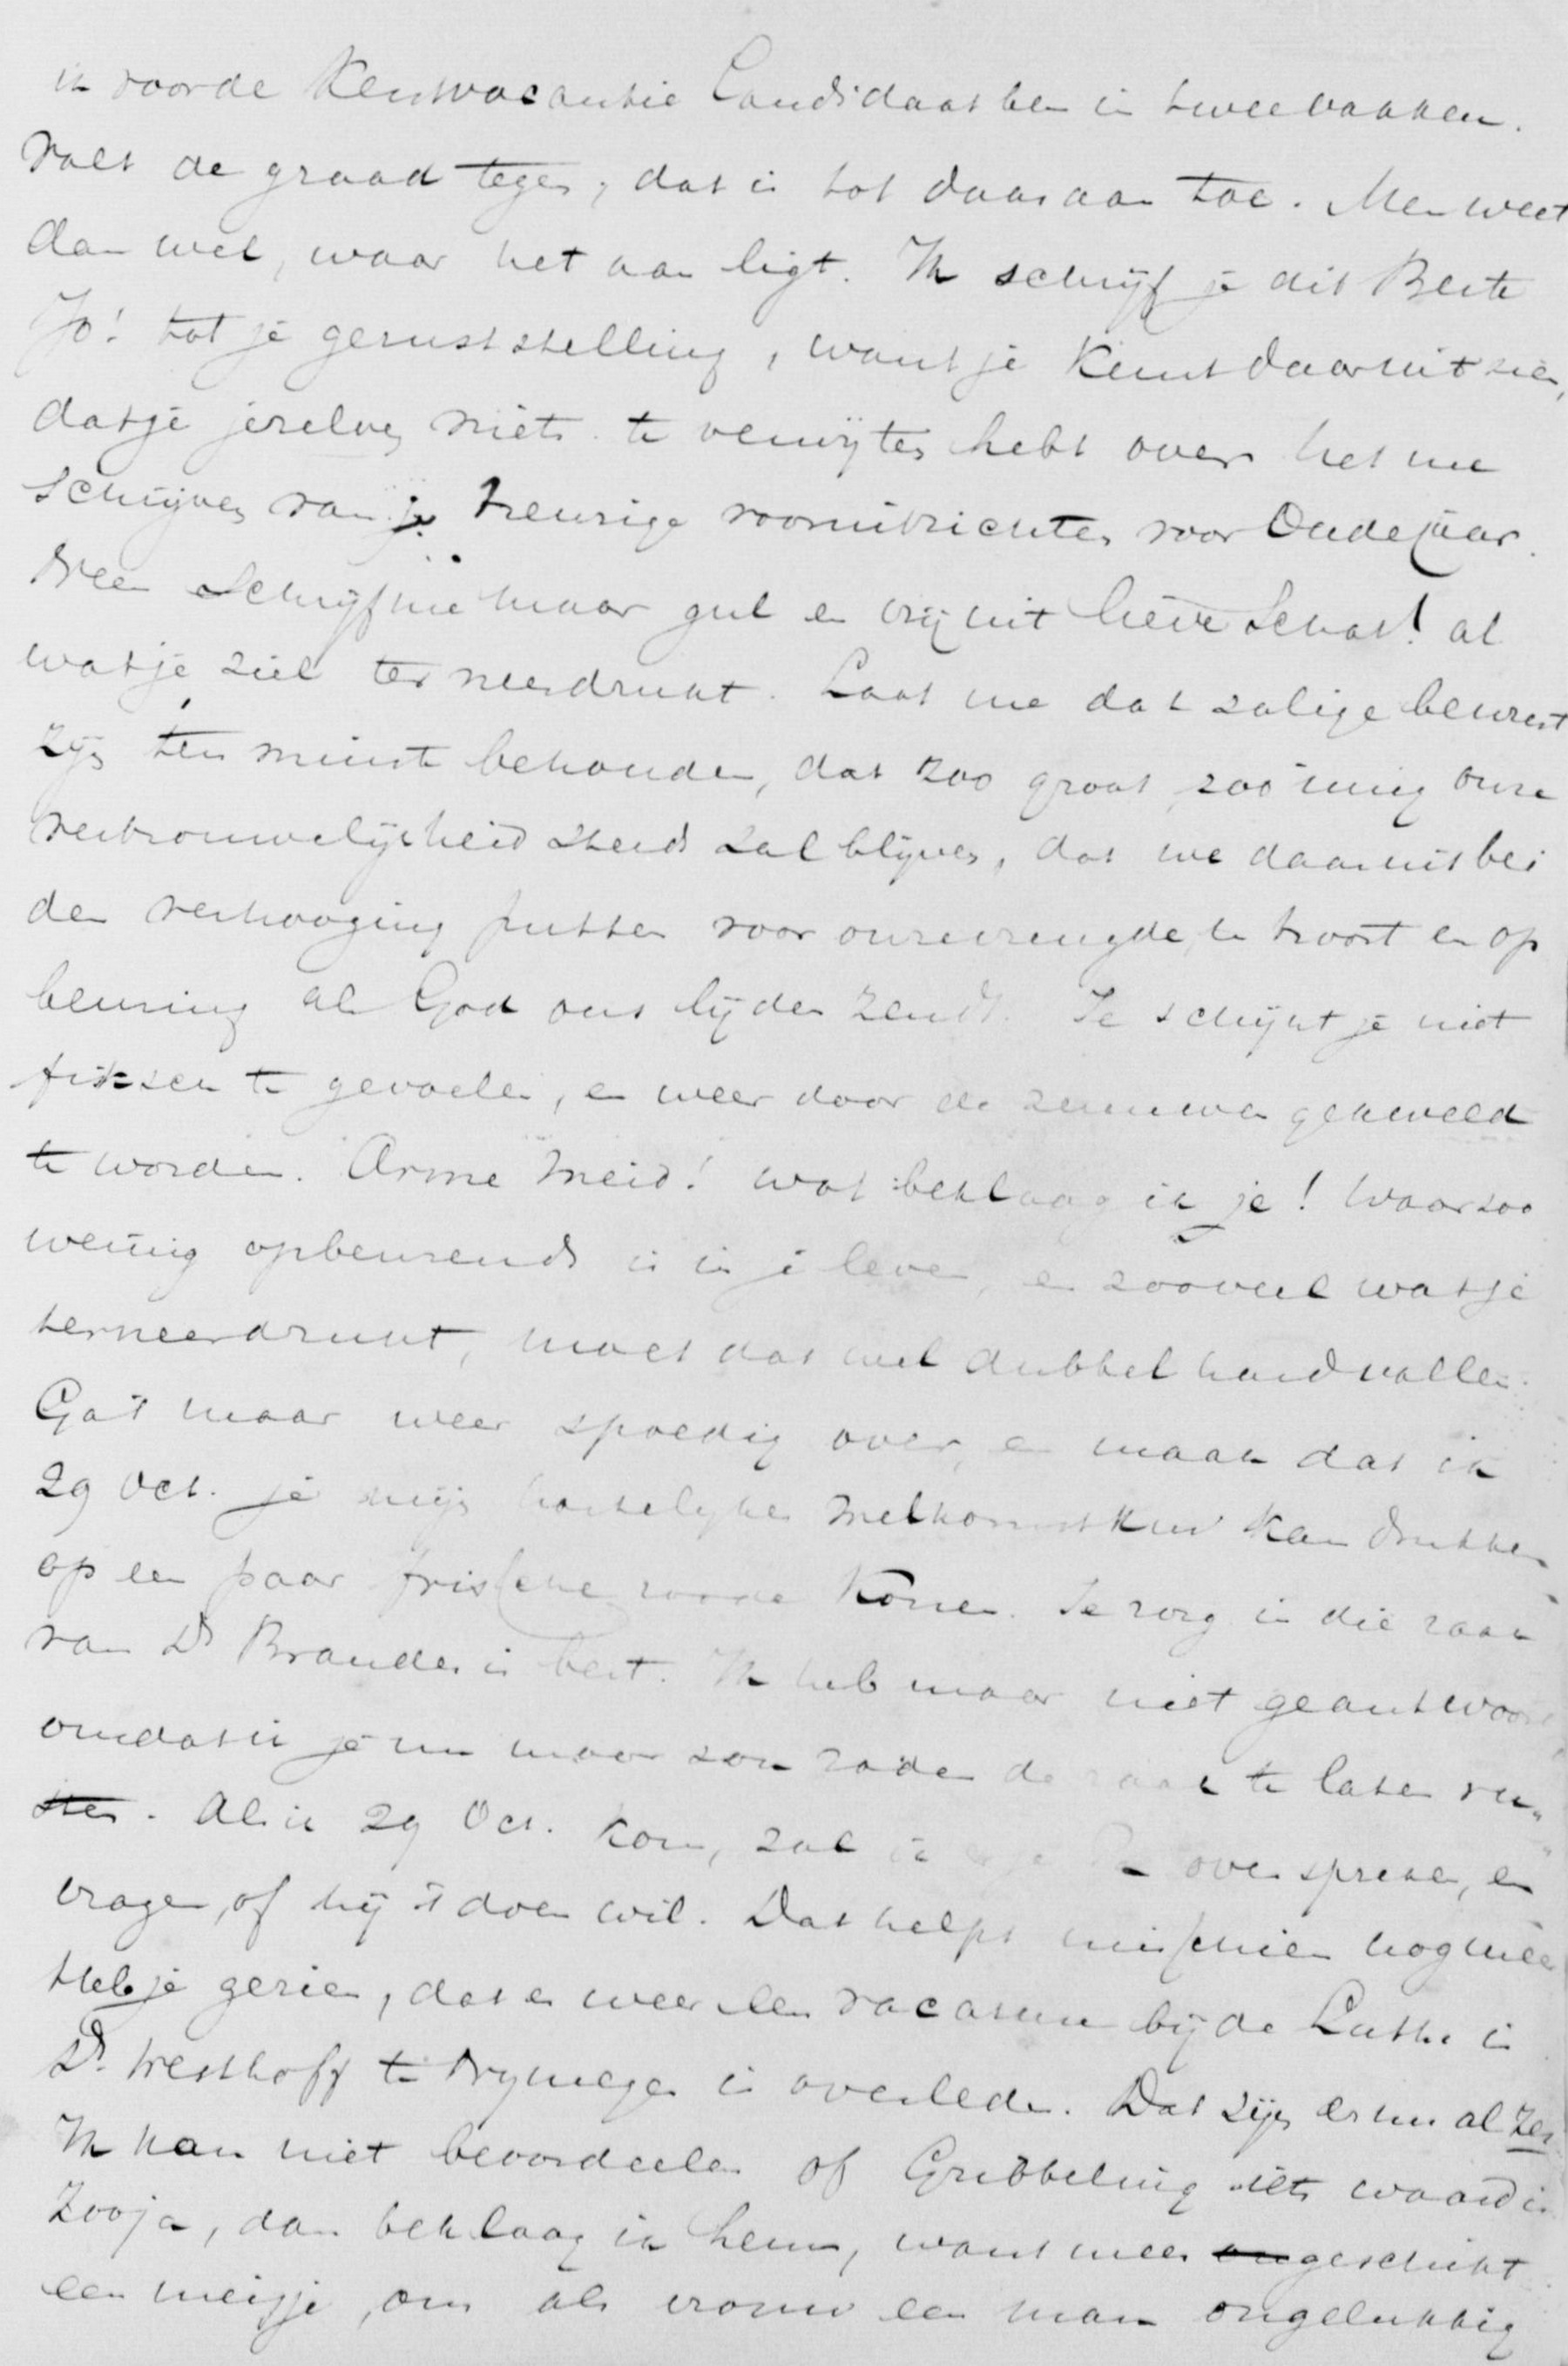 ik voor de Kerstvacantie Candidaat ben in twee vakken.
Valt de graad tegen, dat is tot daaraan toe. Men weet
dan wel, waar het aan ligt. Ik schrijf je dit Beste
Jo! tot je geruststelling, want je kunt daaruit zien,
dat je jezelve niets te verwijten hebt over het me
schrijven van je treurige vooruitzichten voor Oudejaar.
Neen schrijf me maar gul en vrij uit lieve Schat! al
wat je ziel ter neerdrukt. Laat me dat zalige bewust
zijn ten minste behouden, dat zoo groot, zoo innig onze
vertrouwelijkheid steeds zal blijven, dat we daaruit bei
den verhooging putten voor onze vreugde, en troost en op
beuring als God ons lijden zendt. Je schijnt je niet
frisscher te gevoelen, en weer door de zenuwen gekweld
te worden. Arme meid! wat beklaag ik je! Waar zoo
weinig opbeurends is in je leven, en zooveel wat je
terneerdrukt, moet dat wel dubbel hard vallen.
Ga 't maar weer spoedig over, en maak dat ik
29 Oct. je mijn hartelijken welkomstkus kan drukken
op een paar frissche roode konen. Je zorg in die zaak
van Ds Brandes is best. Ik heb maar niet geantwoord
omdat ik je nu maar zou raden de zaak te laten ru„
sten. Als ik 29 Oct. kom, zal ik er over spreken, en
vragen, of hij 't doen wil. Dat helpt misschien nog meer
Heb je gezien, dat er weer een vacature bij de Luthe is
Ds. Westhoff te Nymegen is overleden. Dat zijn er nu al zes
Ik kan niet beoordeelen of Gribbeling iets waard is.
Zoo ja, dan beklaag ik hem, want meer ongeschikt
een meisje, om als vrouw een man ongelukkig